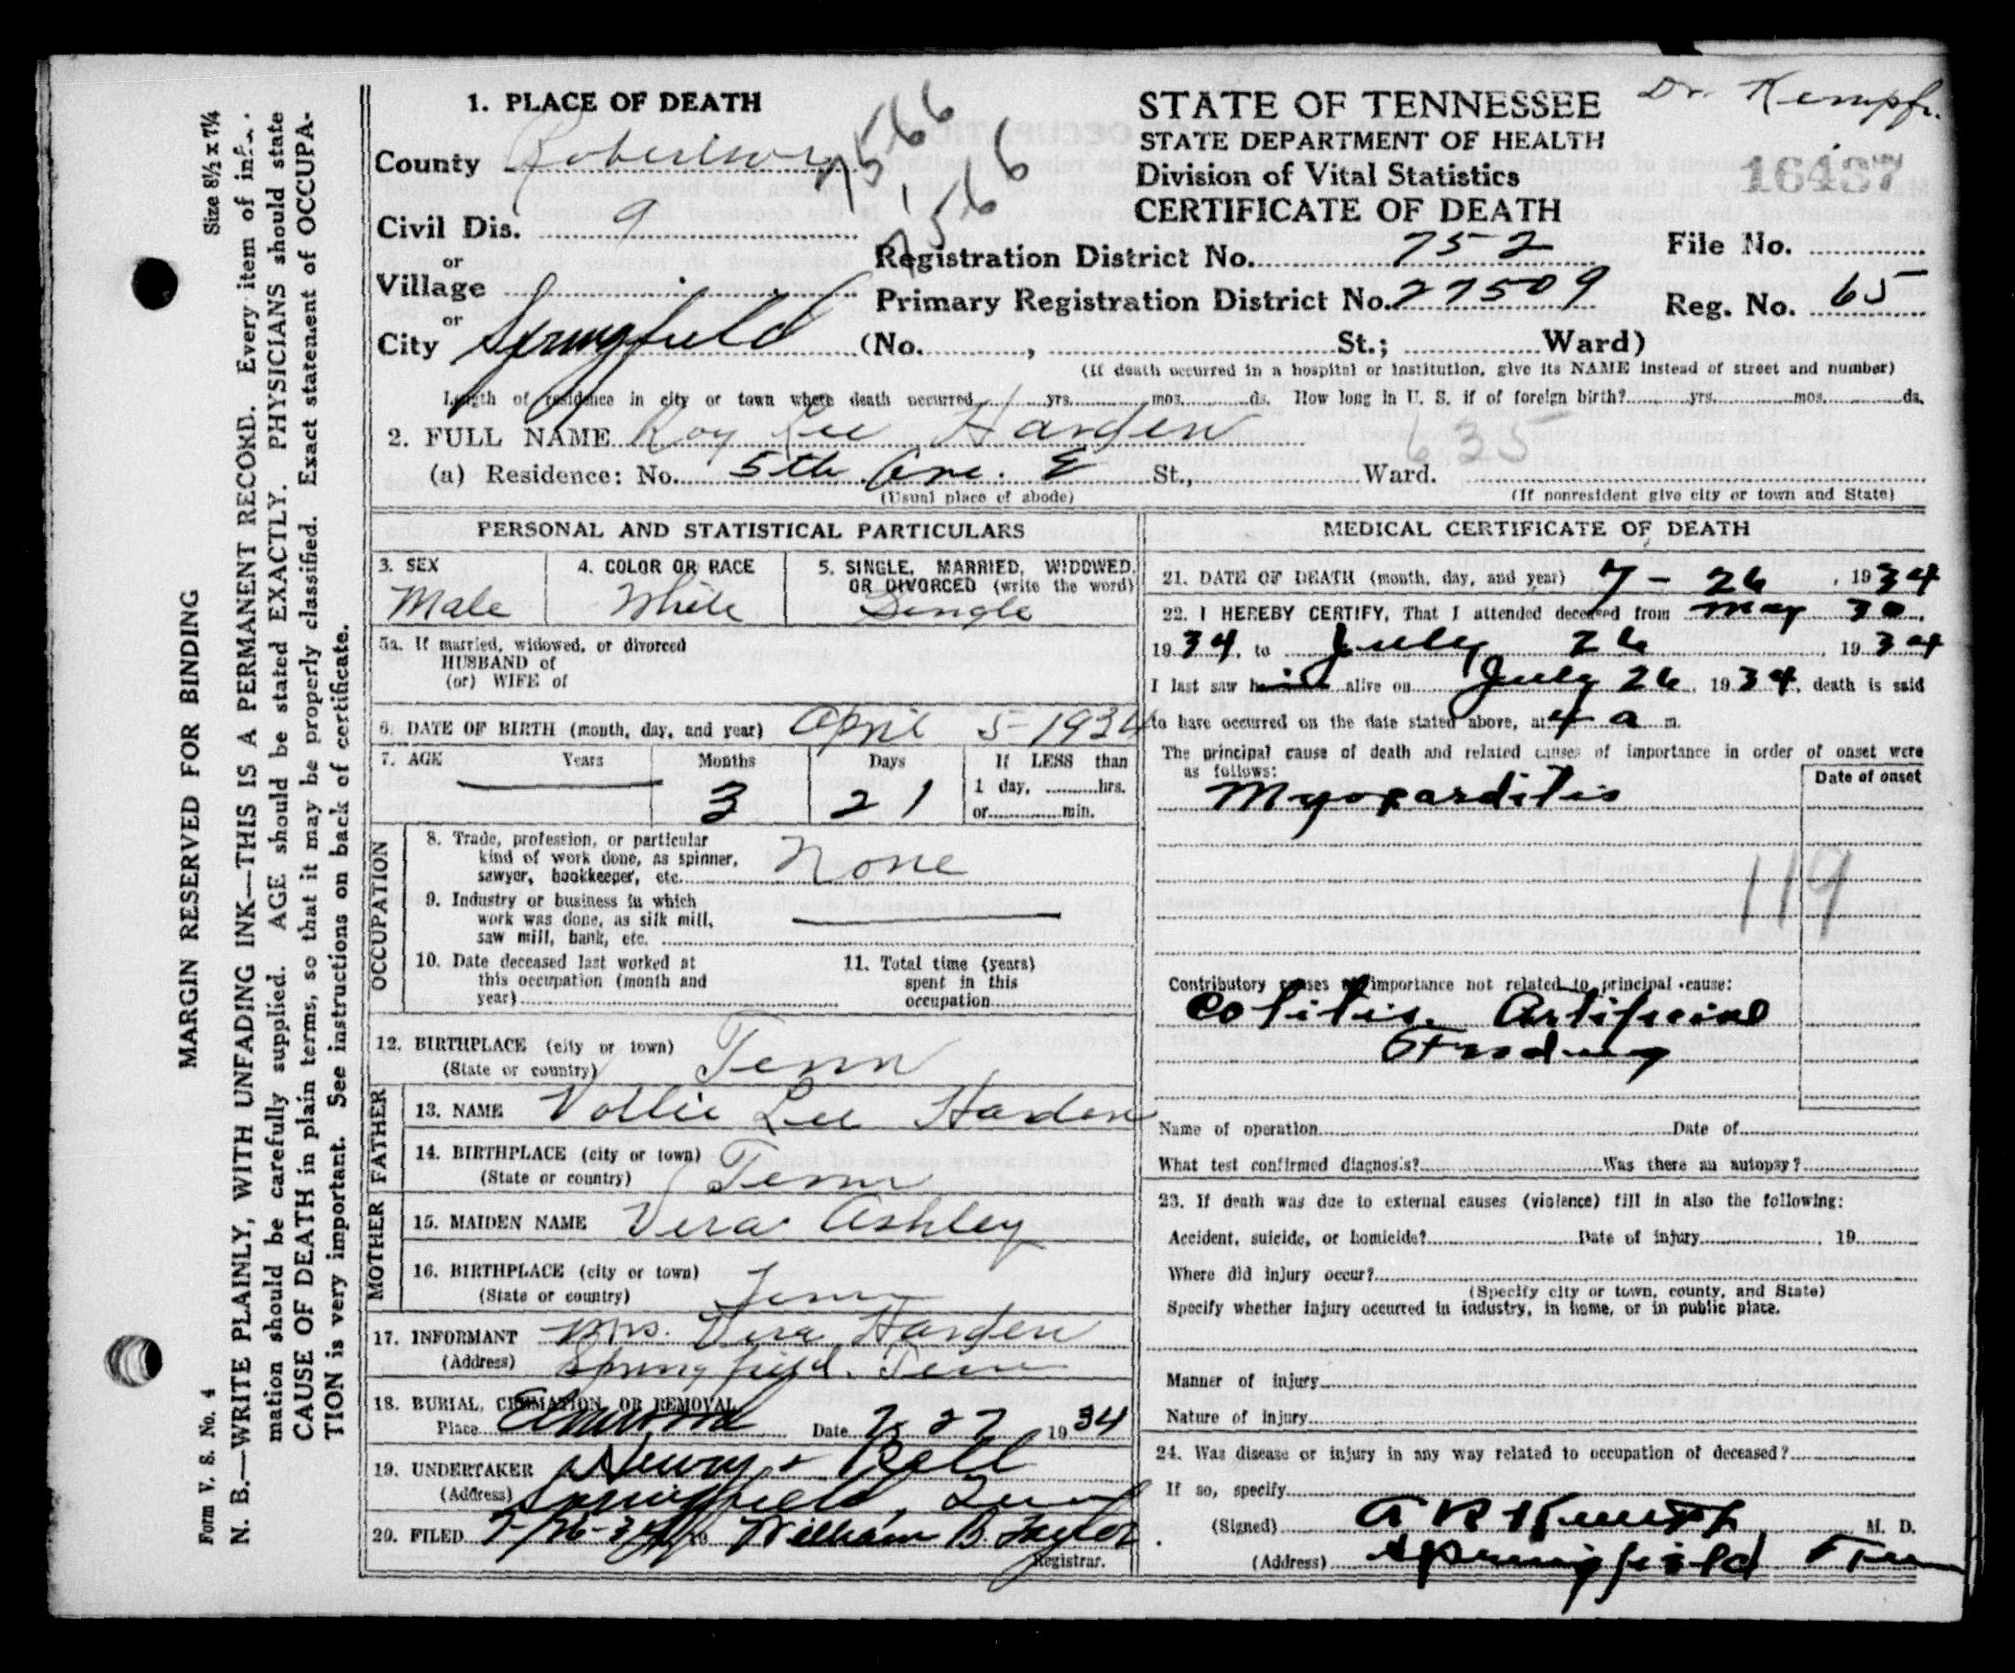 Dr. Kempf.
1. PLACE OF DEATH
County Robertson
7566
7516
756
Civil Dis. 9
or
Village
or
City Springfield (No. , St.; Ward)
STATE OF TENNESSEE
STATE DEPARTMENT OF HEALTH
Division of Vital Statistics
CERTIFICATE OF DEATH
16487
Registration District No. 752 File No.
Primary Registration District No. 27509 Reg. No. 65
(If death occurred in a hospital or institution, give its NAME instead of street and number)
Length of residence in city or town where death occurred yrs. mos. ds. How long in U. S. if of foreign birth? yrs. mos. ds.
2. FULL NAME Roy Lee Harden 635
(a) Residence: No. 5th Ave. E St., Ward.
(Usual place of abode) (If nonresident give city or town and State)
PERSONAL AND STATISTICAL PARTICULARS
3. SEX 4. COLOR OR RACE 5. SINGLE, MARRIED, WIDOWED,
OR DIVORCED (write the word)
Male White Single
5a. If married, widowed, or divorced
HUSBAND of
(or) WIFE of
6. DATE OF BIRTH (month, day, and year) April 5-1934
7. AGE Years Months Days If LESS than
1 day, hrs.
or min.
3 21
OCCUPATION
8. Trade, profession, or particular
kind of work done, as spinner,
sawyer, bookkeeper, etc. None
9. Industry or business in which
work was done, as silk mill,
saw mill, bank, etc.
10. Date deceased last worked at
this occupation (month and
year)
11. Total time (years)
spent in this
occupation
12. BIRTHPLACE (city or town)
(State or country) Tenn
FATHER
13. NAME Vollie Lee Harden
14. BIRTHPLACE (city or town)
(State or country) Tenn
MOTHER
15. MAIDEN NAME Vera Ashley
16. BIRTHPLACE (city or town)
(State or country) Tenn
17. INFORMANT Mrs. Vera Harden
(Address) Springfield, Tenn
18. BURIAL, CREMATION, OR REMOVAL
Place Elmwood Date 7-27 1934
19. UNDERTAKER Henry & Bell
(Address) Springfield, Tenn
20. FILED 7-26-34 19 William B. Taylor
Registrar.
MEDICAL CERTIFICATE OF DEATH
21. DATE OF DEATH (month, day, and year) 7-26, 1934
22. I HEREBY CERTIFY, That I attended deceased from May 30,
1934, to July 26, 1934
I last saw him alive on July 26, 1934, death is said
to have occurred on the date stated above, at 4 a m.
The principal cause of death and related causes of importance in order of onset were
as follows:
Date of onset
Myocarditis
119
Contributory causes of importance not related to principal cause:
Colitis. Artificial
Feeding
Name of operation Date of
What test confirmed diagnosis? Was there an autopsy?
23. If death was due to external causes (violence) fill in also the following:
Accident, suicide, or homicide? Date of injury , 19
Where did injury occur?
(Specify city or town, county, and State)
Specify whether injury occurred in industry, in home, or in public place.
Manner of injury
Nature of injury
24. Was disease or injury in any way related to occupation of deceased?
If so, specify
(Signed) A R Kempf M. D.
(Address) Springfield Tenn
Size 8½ x 7¼
MARGIN RESERVED FOR BINDING
Form V. S. No. 4
N. B.—WRITE PLAINLY, WITH UNFADING INK—THIS IS A PERMANENT RECORD. Every item of infor-
mation should be carefully supplied. AGE should be stated EXACTLY. PHYSICIANS should state
CAUSE OF DEATH in plain terms, so that it may be properly classified. Exact statement of OCCUPA-
TION is very important. See instructions on back of certificate.